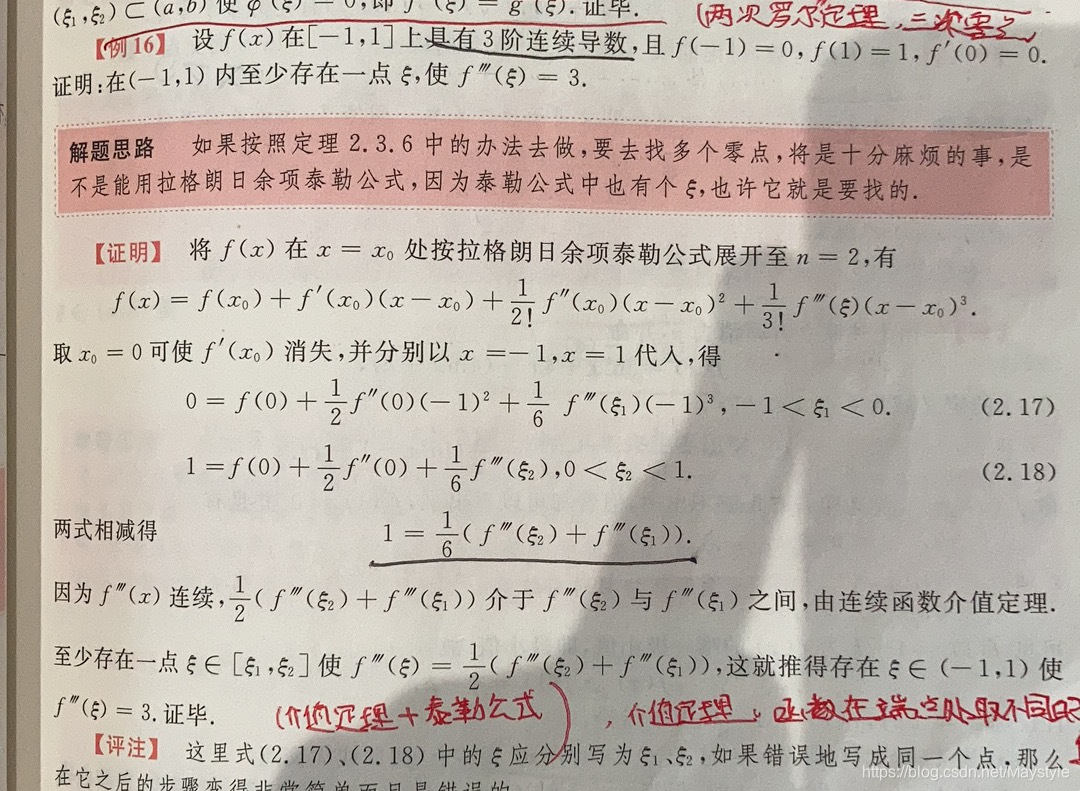 (ξ₁,ξ₂)⊂(a,b)使φ′(ξ)=0,即f″(ξ)=g″(ξ).证毕.
(两次罗尔定理,三次零点
【例16】 设f(x)在[-1,1]上具有3阶连续导数,且f(-1)=0,f(1)=1,f′(0)=0.
证明:在(-1,1)内至少存在一点ξ,使f‴(ξ)=3.
解题思路 如果按照定理2.3.6中的办法去做,要去找多个零点,将是十分麻烦的事,是
不是能用拉格朗日余项泰勒公式,因为泰勒公式中也有个ξ,也许它就是要找的.
【证明】 将f(x)在x=x₀处按拉格朗日余项泰勒公式展开至n=2,有
f(x)=f(x₀)+f′(x₀)(x-x₀)+1/2! f″(x₀)(x-x₀)²+1/3! f‴(ξ)(x-x₀)³.
取x₀=0可使f′(x₀)消失,并分别以x=-1,x=1代入,得
0=f(0)+1/2 f″(0)(-1)²+1/6 f‴(ξ₁)(-1)³,-1<ξ₁<0. (2.17)
1=f(0)+1/2 f″(0)+1/6 f‴(ξ₂),0<ξ₂<1. (2.18)
两式相减得 1=1/6(f‴(ξ₂)+f‴(ξ₁)).
因为f‴(x)连续,1/2(f‴(ξ₂)+f‴(ξ₁))介于f‴(ξ₂)与f‴(ξ₁)之间,由连续函数介值定理.
至少存在一点ξ∈[ξ₁,ξ₂]使f‴(ξ)=1/2(f‴(ξ₂)+f‴(ξ₁)),这就推得存在ξ∈(-1,1)使
f‴(ξ)=3.证毕. (介值定理+泰勒公式),介值定理。函数在端点处取不同
【评注】 这里式(2.17)、(2.18)中的ξ应分别写为ξ₁、ξ₂,如果错误地写成同一个点.那么
在它之后的步骤变得非常简单而且是错误的
https://blog.csdn.net/Maystyle